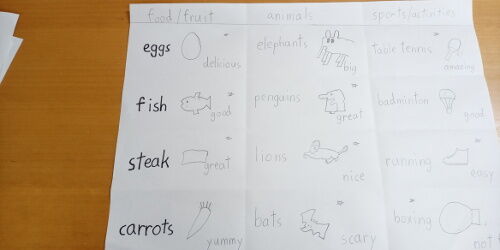 food/fruit animals sports/activities
eggs delicious elephants big table tennis amazing
fish good penguins great badminton good
steak great lions nice running easy
carrots yummy bats scary boxing not